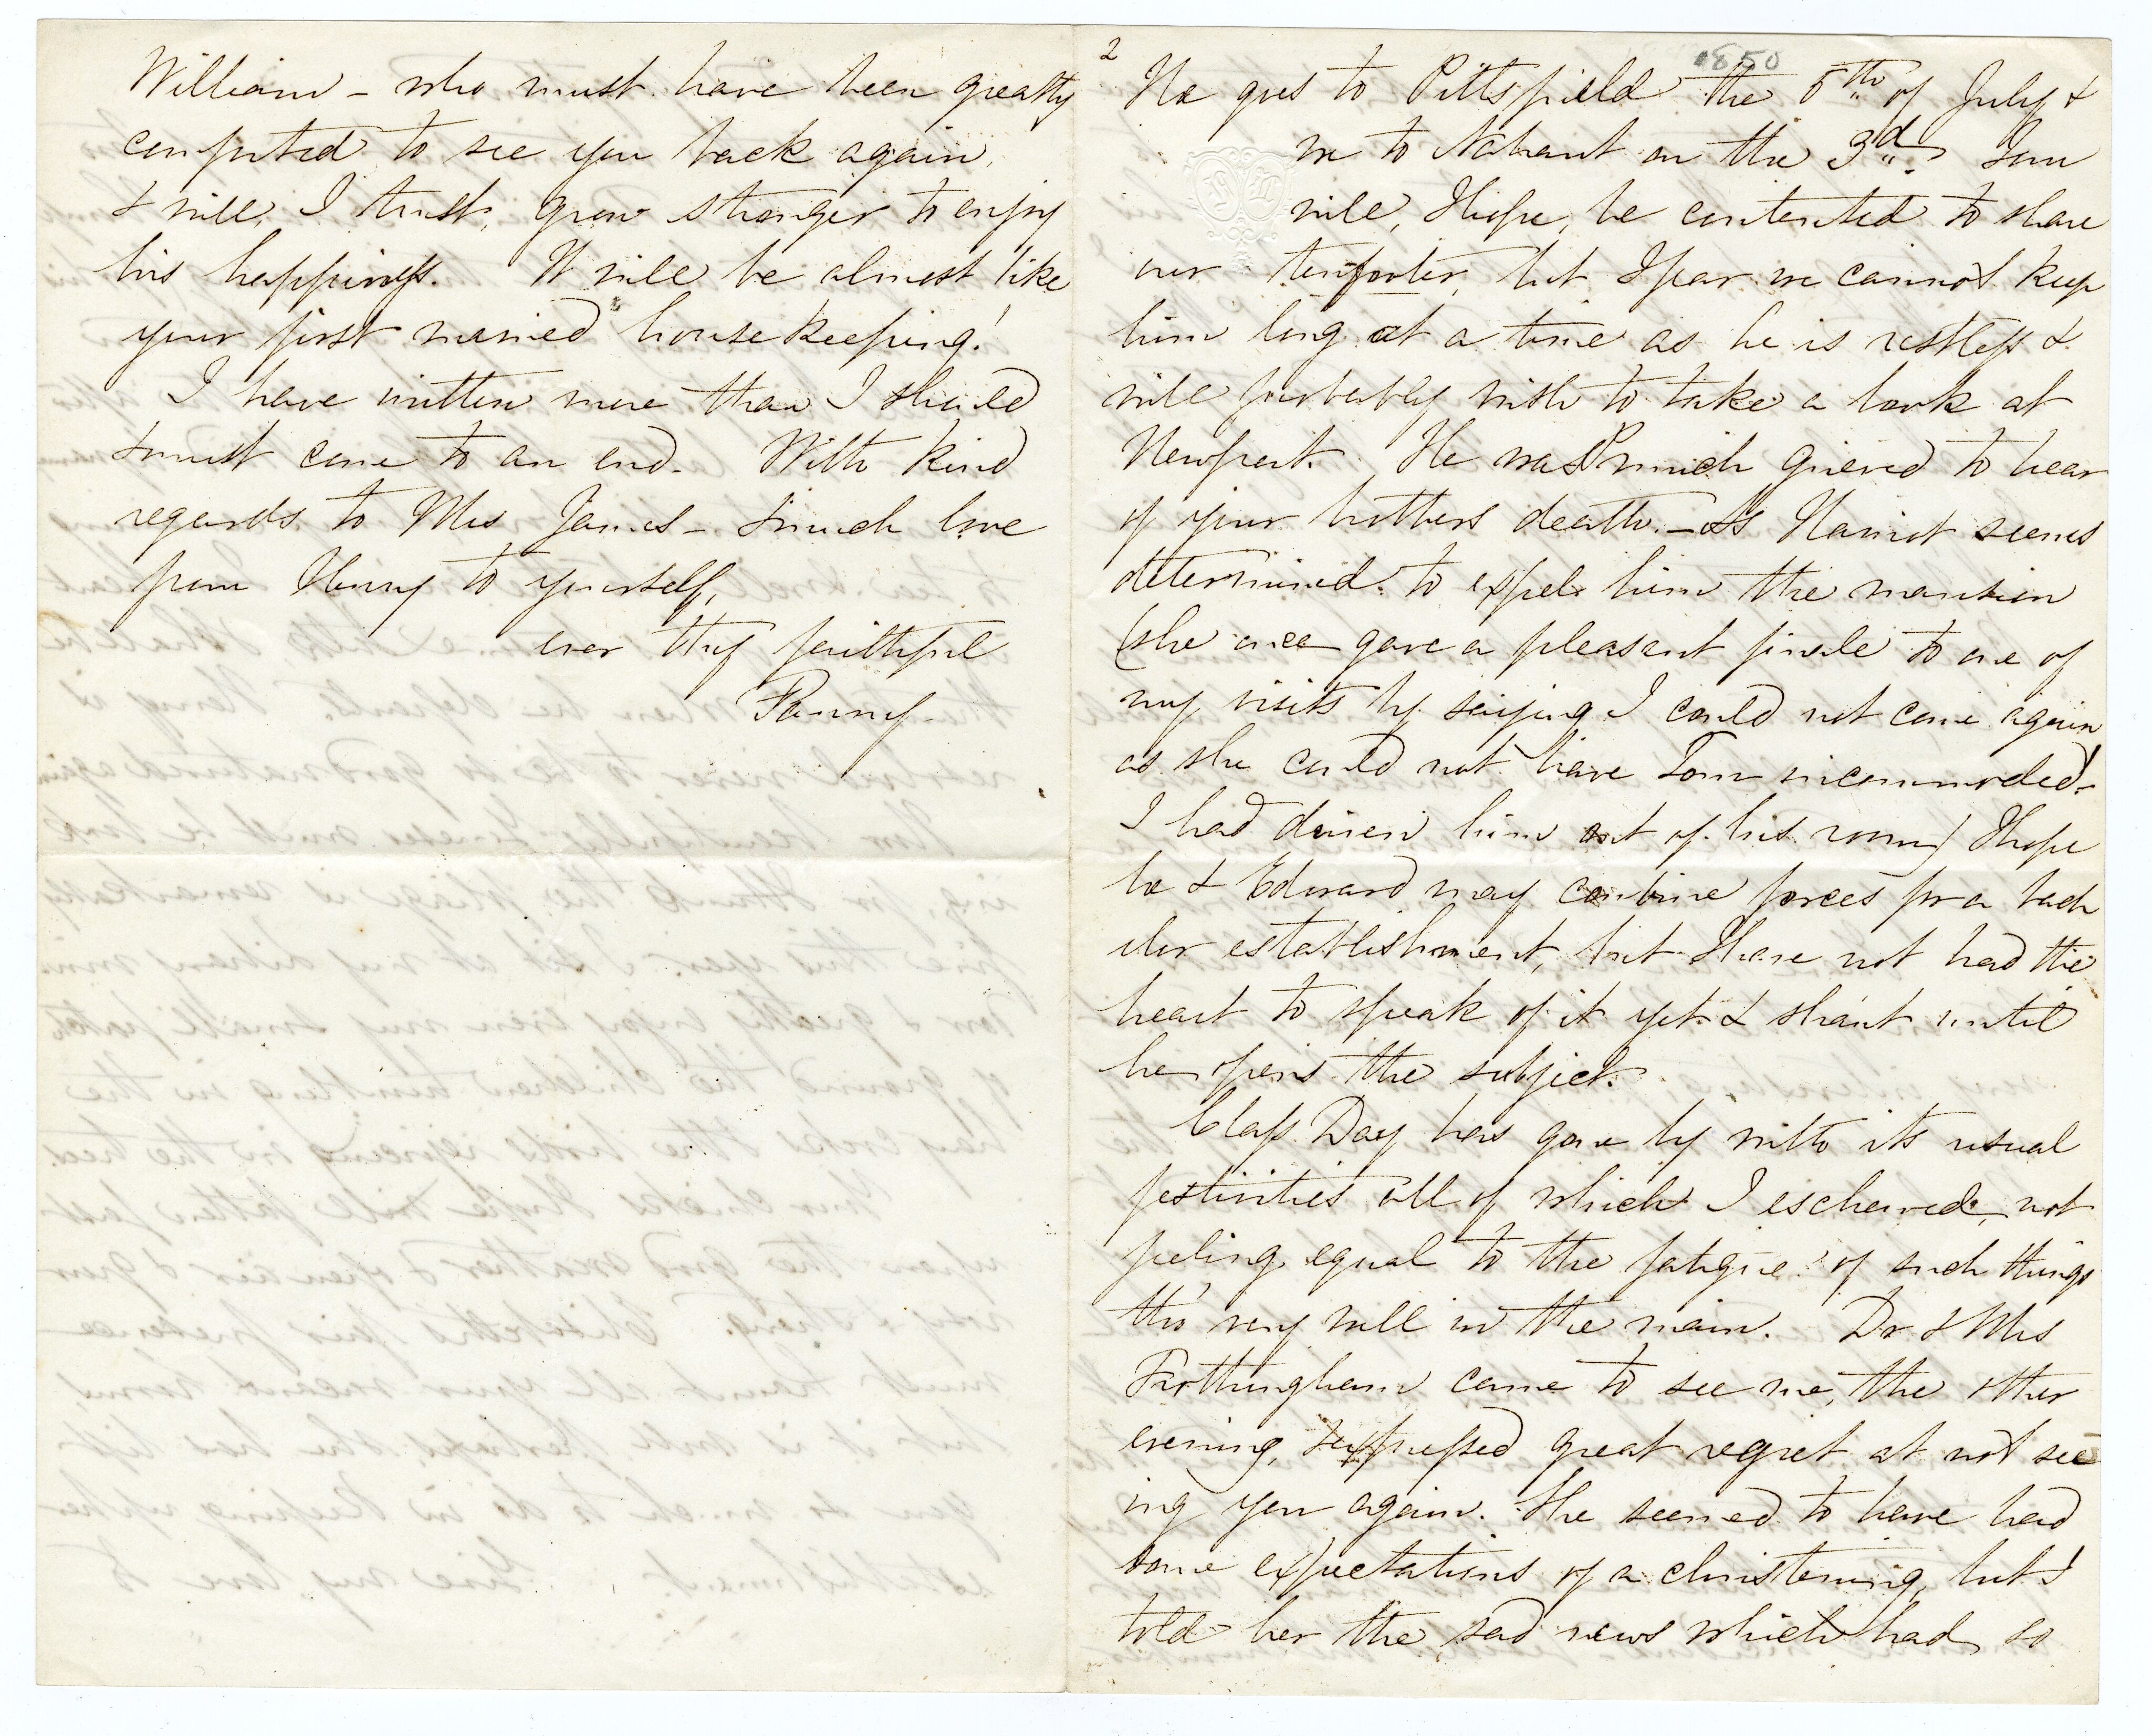 William – who must have been greatly
comforted to see you back again,
& will, I trust, grow stronger to enjoy
his happiness. It will be almost like
your first married housekeeping!
I have written more than I should
& must come to an end. With kind
regards to Mrs James – & much love
from Henry to yourself,
ever thy faithful
Fanny –
2
1850
He goes to Pittsfield the 5th of July &
we to Nahant on the 3d. Tom
will, I hope, be contented to share
our but I fear we cannot keep
him long at a time as he is restless &
will probably wish to take a look at
Newport. He was much grieved to hear
of your brothers death. – As Harriot seems
determined to expel him the mansion
(she once gave a pleasant finale to one of
my visits by saying I could not come again
as she could not have Tom incommoded –
I had driven him out of his room) I hope
he & Edward may combine forces for a bach
elor establishment, but I have not had the
heart to speak of it yet & shan't until
he opens the subject.
Class Day has gone by with its usual
festivities all of which I eschewed, not
feeling equal to the fatigue of such things
tho' very well in the main. Dr & Mrs
Frothingham came to see me, the other
evening, & expressed great regret at not see
ing you again. She seemed to have had
some expectations of a christening, but I
told her the sad news which had so